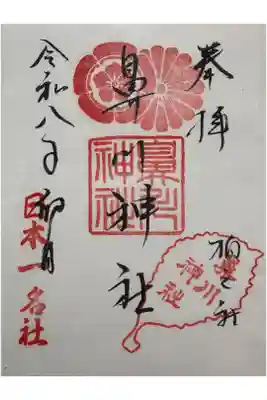 奉拝
鼻川神社
鼻川神社
鼻川神社
令和八年卯月
日本一名社